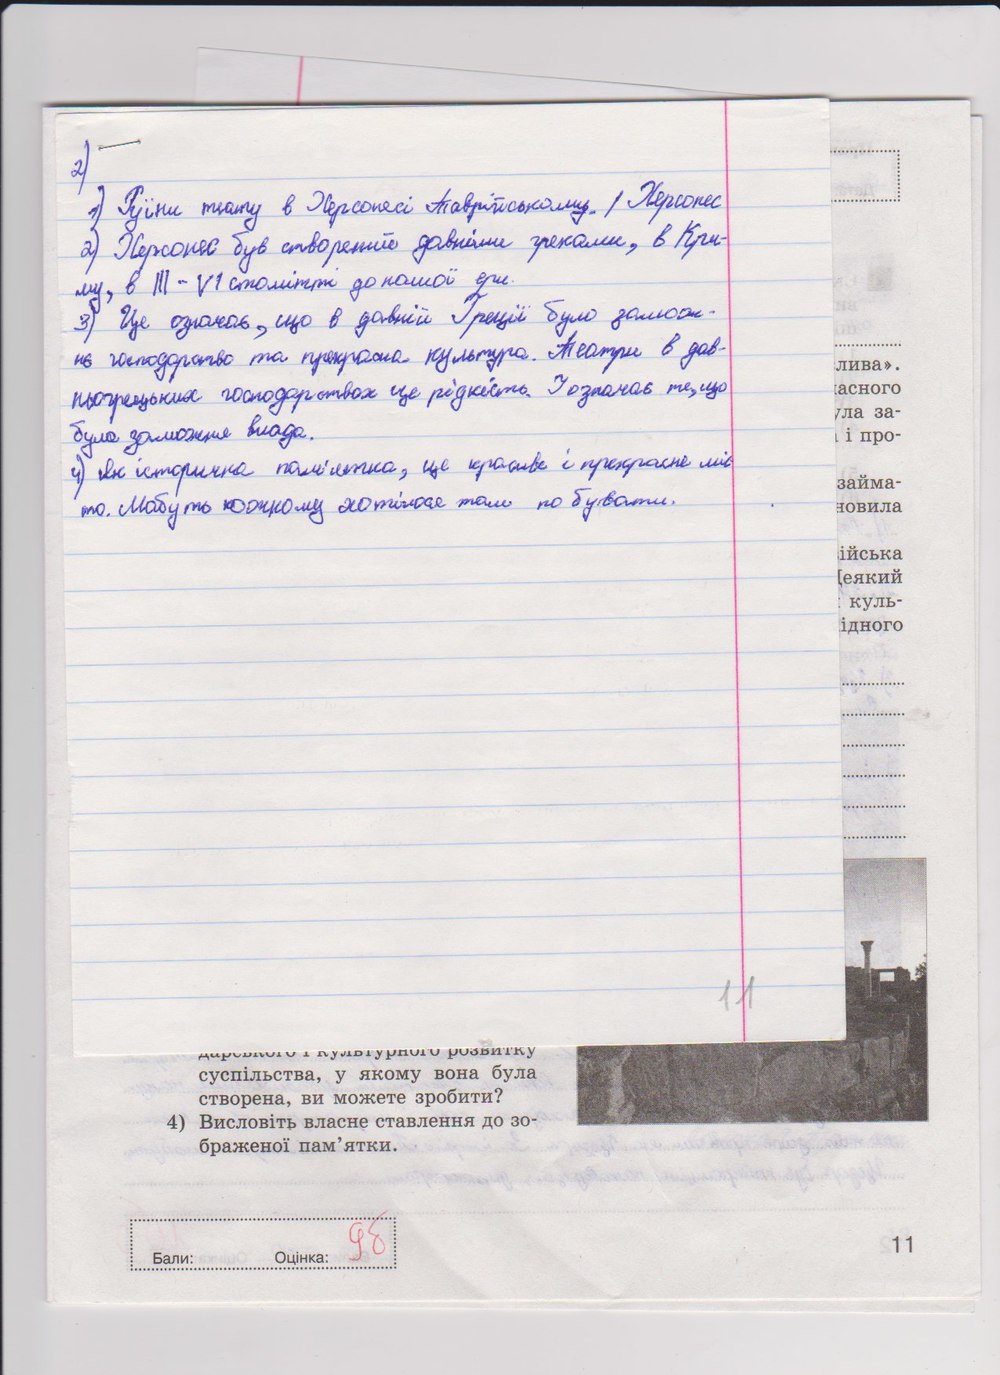 2)
1) Руїни теату в Херсонесі Таврійському. / Херсонес
2) Херсонес був створений давніми греками, в Кри-
му, в III - VI столітті до нашої ери.
3) Це означає, що в давній Греції було замож-
не господарство та прекрасна культура. Театри в дав-
ньогрецьких господарствах це рідкість. І означає те, що
була заможня влада.
4) Як історична пам'ятка, це красиве і прекрасне міс
то. Мабуть кожному хотілося там по бувати.
лива».
асного
ула за-
і про-
займа-
новила
ійська
Деякий
куль-
ідного
11
дарського і культурного розвитку
суспільства, у якому вона була
створена, ви можете зробити?
4) Висловіть власне ставлення до зо-
браженої пам'ятки.
Бали: Оцінка: 9б
11